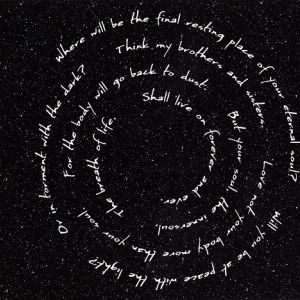 Where will be the final resting place of your eternal soul?
Will you be at peace with the light?
Or in torment with the dark?
Think my brothers and sisters.
Love not your body more than your soul
For the body will go back to dust.
But your soul the innersoul
The breath of life.
Shall live on forever and ever.